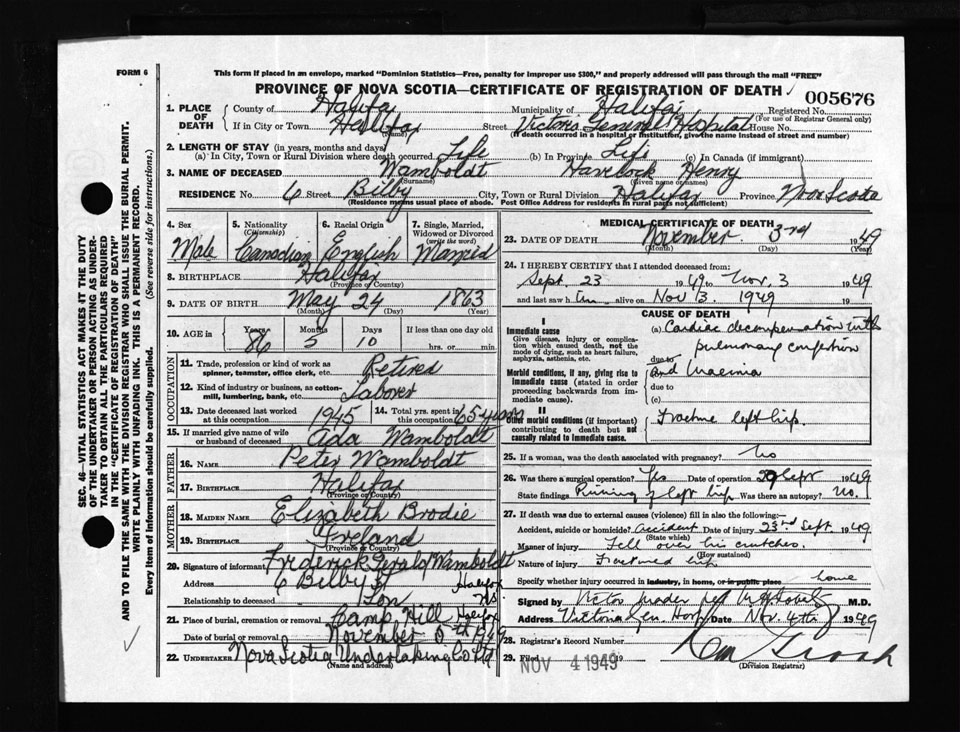 FORM 6
This form if placed in an envelope, marked "Dominion Statistics—Free, penalty for improper use $300," and properly addressed will pass through the mail "FREE"
PROVINCE OF NOVA SCOTIA—CERTIFICATE OF REGISTRATION OF DEATH
005676
1. PLACE OF DEATH
County of Halifax Municipality of Halifax Registered No.
(For use of Registrar General only)
If in City or Town Halifax Street Victoria General Hospital House No.
(If death occurred in a hospital or institution, give the name instead of street and number)
2. LENGTH OF STAY (in years, months and days)
(a) In City, Town or Rural Division where death occurred Life (b) In Province Life (c) In Canada (if immigrant)
3. NAME OF DECEASED Wamboldt Havelock Henry
(Surname) (Given name or names)
RESIDENCE No. 6 Street Bilby City, Town or Rural Division Halifax Province Nova Scotia
(Residence means usual place of abode. Post Office Address for residents in rural parts not sufficient)
4. Sex
Male
5. Nationality
(Citizenship)
Canadian
6. Racial Origin
English
7. Single, Married, Widowed or Divorced
(write the word)
Married
8. BIRTHPLACE Halifax
(Province or Country)
9. DATE OF BIRTH May 24 1863
(Month) (Day) (Year)
10. AGE in Years Months Days If less than one day old
86 5 10 hrs. or min.
OCCUPATION
11. Trade, profession or kind of work as spinner, teamster, office clerk, etc. Retired
12. Kind of industry or business, as cotton-mill, lumbering, bank, etc. Laborer
13. Date deceased last worked at this occupation 1945
14. Total yrs. spent in this occupation 65 years
15. If married give name of wife or husband of deceased Ada Wamboldt
FATHER
16. NAME Peter Wamboldt
17. BIRTHPLACE Halifax
(Province or Country)
MOTHER
18. MAIDEN NAME Elizabeth Brodie
19. BIRTHPLACE Ireland
(Province or Country)
20. Signature of informant Frederick Gerald Wamboldt
Address 6 Bilby St Halifax
Relationship to deceased Son N.S.
21. Place of burial, cremation or removal Camp Hill Halifax
Date of burial or removal November 5th 1949
22. UNDERTAKER Nova Scotia Undertaking Co Ltd
(Name and address)
MEDICAL CERTIFICATE OF DEATH
23. DATE OF DEATH November 3rd 1949
(Month) (Day)
24. I HEREBY CERTIFY that I attended deceased from:
Sept. 23 1949 to Nov. 3 1949
and last saw him alive on Nov 3. 1949 19
CAUSE OF DEATH
I
Immediate cause
Give disease, injury or complication which caused death, not the mode of dying, such as heart failure, asphyxia, asthenia, etc.
(a) Cardiac decompensation with
pulmonary congestion
due to
Morbid conditions, if any, giving rise to immediate cause (stated in order proceeding backwards from immediate cause).
(b) and uraemia
due to
(c)
II
Other morbid conditions (if important) contributing to death but not causally related to immediate cause.
Fracture left hip.
25. If a woman, was the death associated with pregnancy? No
26. Was there a surgical operation? Yes Date of operation 29 Sept 1949
State findings Pinning of left hip Was there an autopsy? No.
27. If death was due to external causes (violence) fill in also the following:-
Accident, suicide or homicide? accident Date of injury 23rd Sept. 1949
(State which)
Manner of injury Fell over his crutches.
(How sustained)
Nature of injury Fractured hip
Specify whether injury occurred in industry, in home, or in public place home
Signed by Victor Mader per M.D.
Address Victoria Gen. Hosp. Date Nov. 4th 1949
28. Registrar's Record Number
29. Filed NOV 4 1949 19
(Division Registrar)
SEC. 46—VITAL STATISTICS ACT MAKES IT THE DUTY OF THE UNDERTAKER OR PERSON ACTING AS UNDERTAKER TO OBTAIN ALL THE PARTICULARS REQUIRED IN THE "CERTIFICATE OF REGISTRATION OF DEATH" AND TO FILE THE SAME WITH THE DIVISION REGISTRAR WHO SHALL ISSUE THE BURIAL PERMIT.
WRITE PLAINLY WITH UNFADING INK. THIS IS A PERMANENT RECORD.
Every item of Information should be carefully supplied. (See reverse side for instructions.)